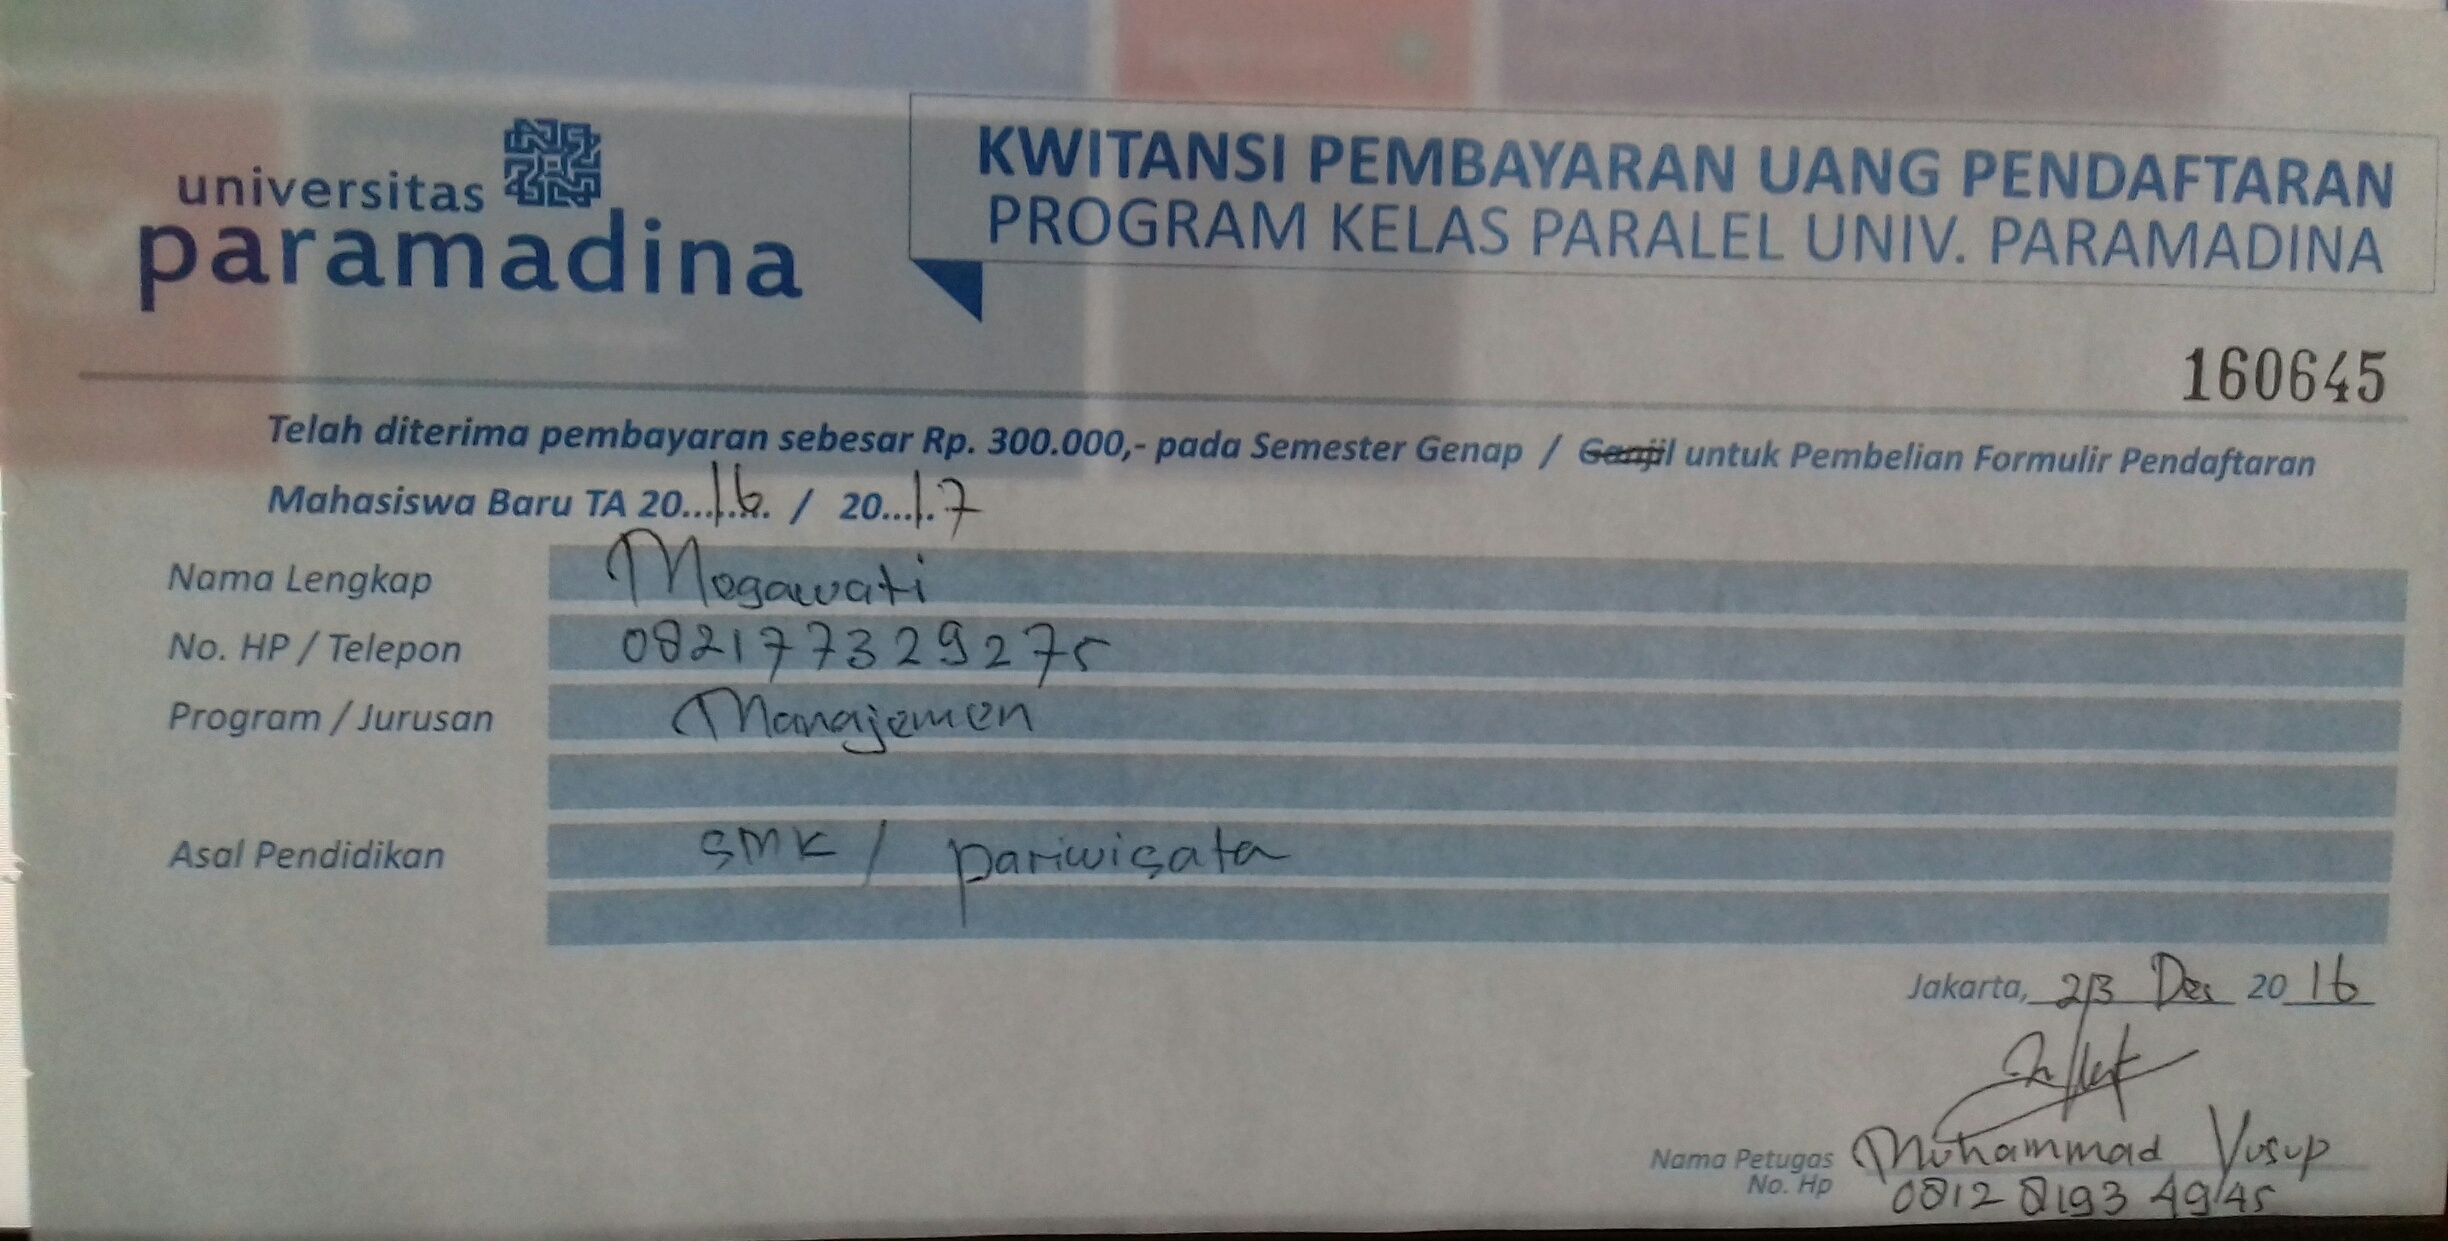 universitas
paramadina
KWITANSI PEMBAYARAN UANG PENDAFTARAN
PROGRAM KELAS PARALEL UNIV. PARAMADINA
160645
Telah diterima pembayaran sebesar Rp. 300.000,- pada Semester Genap / Ganjil untuk Pembelian Formulir Pendaftaran
Mahasiswa Baru TA 20...16. / 20...17
Nama Lengkap Megawati
No. HP / Telepon 082177329275
Program / Jurusan Manajemen
Asal Pendidikan SMK / pariwisata
Jakarta, 23 Des 2016
Nama Petugas Muhammad Yusup
No. Hp 0812 8193 4945